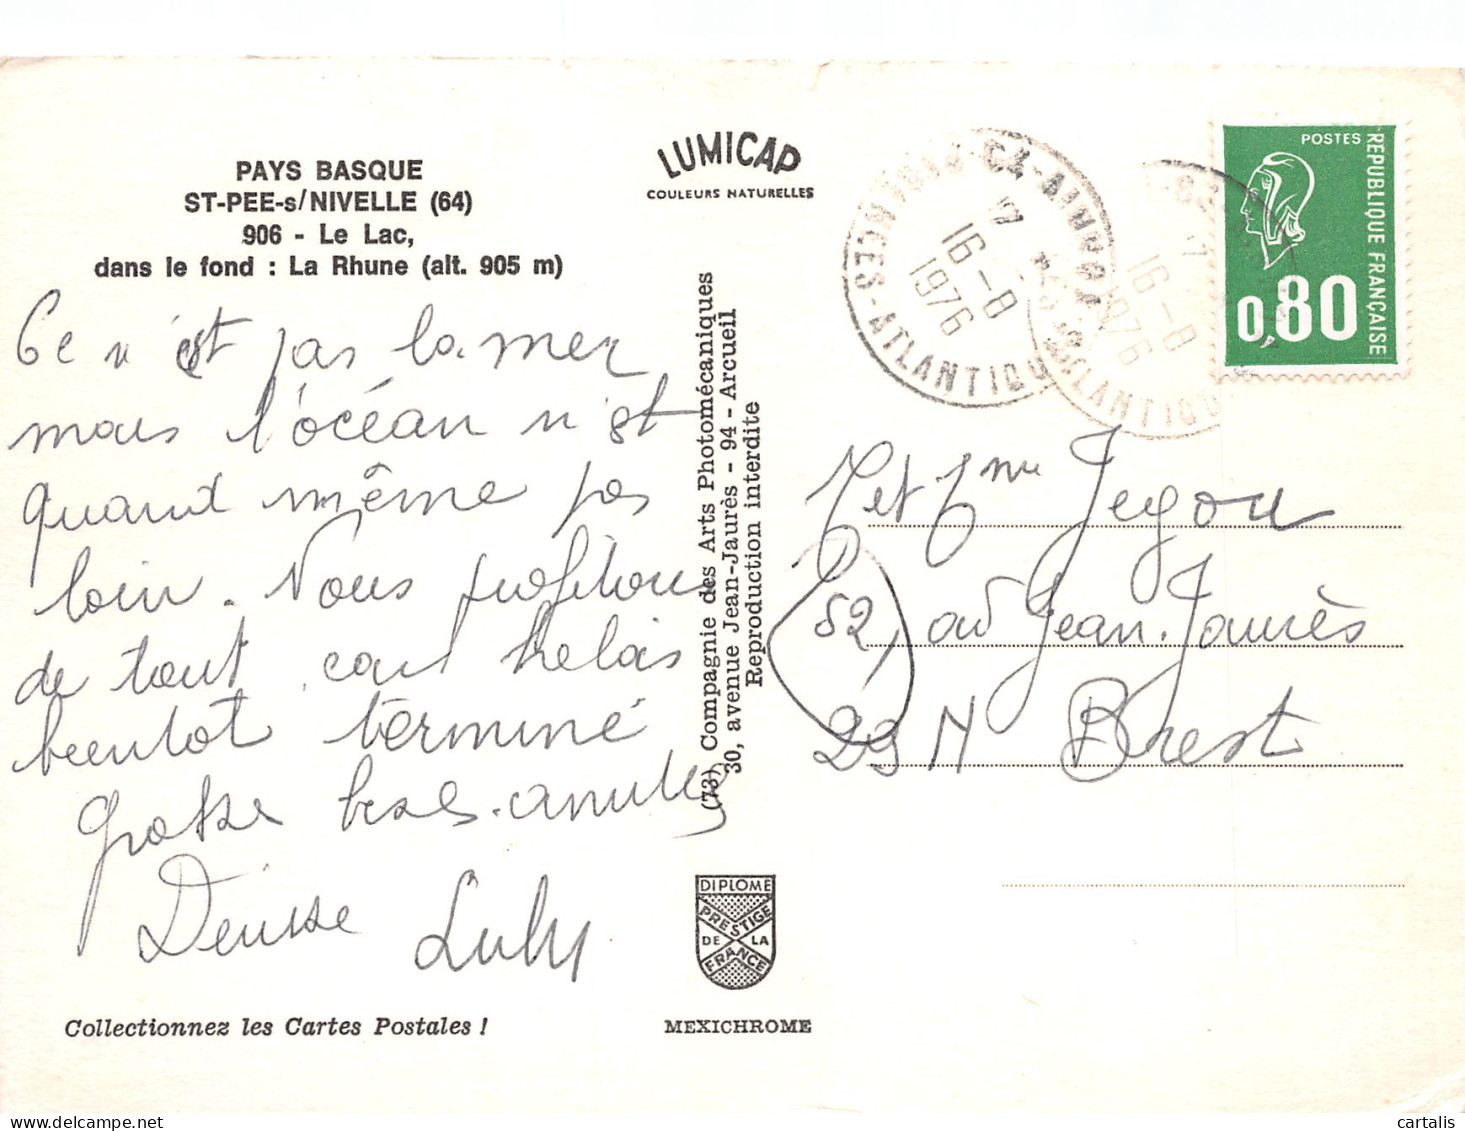 PAYS BASQUE
ST-PEE-s/NIVELLE (64)
906 - Le Lac,
dans le fond : La Rhune (alt. 905 m)
Ce n'est pas la mer
mais l'océan n'est
quand même pas
loin. Nous profitons
de tout, court hélas
bientot terminé
Grosses bises. amitiés
Denise Luly
Collectionnez les Cartes Postales !
LUMICAP
COULEURS NATURELLES
(73) Compagnie des Arts Photomécaniques
30, avenue Jean-Jaurès - 94 - Arcueil
Reproduction interdite
DIPLOME
PRESTIGE
DE LA
FRANCE
MEXICHROME
16-8
1976
ATLANTIQU
16-8
1976
ATLANTIQU
POSTES
REPUBLIQUE FRANÇAISE
0,80
et Mme Jegou
52, av Jean. Jaurès
29N Brest
cartalis